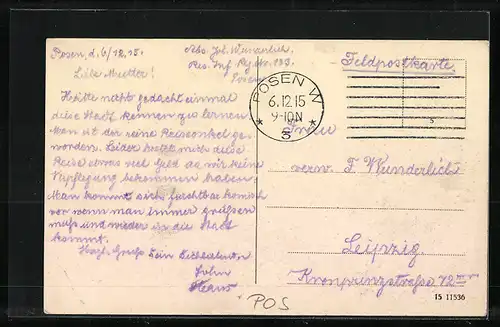 Posen, d. 6/12.15.
Abs. Joh. Wunderlich.
Res. Inf. Rg. Nr. 133.
Posen
Liebe Mutter!
Hätte nicht gedacht einmal
diese Stadt kennen zu lernen.
Man ist der reine Reiseonkel ge-
worden. Leider kostet mich diese
Reise etwas viel Geld da wir keine
Verpflegung bekommen haben.
Man kommt sich furchtbar komisch
vor wenn man immer grüßen
muß und wieder in die Stadt
kommt.
Herzl. Gruß Dein
Sohn
Hans
Feldpostkarte
POSEN W
6.12.15
9-10N
* S *
S
Frau
verw. F. Wunderlich
Leipzig.
Kronprinzstraße 72
15 11536
POS